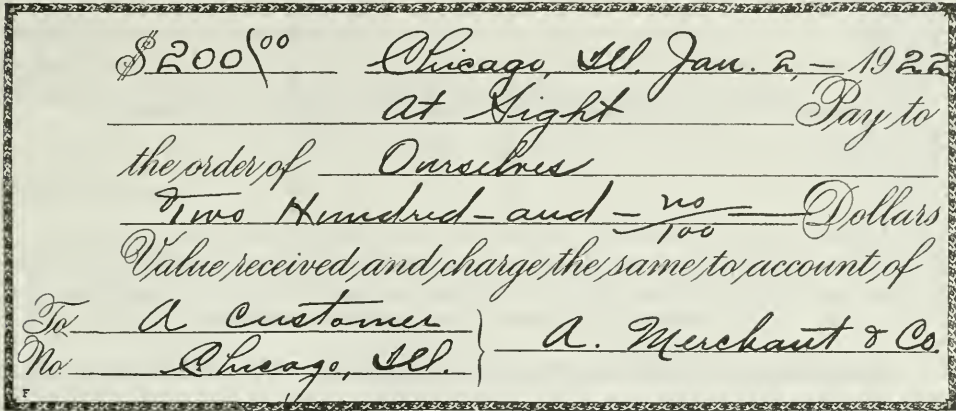 $200/00 Chicago, Ill. Jan. 2, - 1922
At Sight Pay to
the order of Ourselves
Two Hundred - and - no/100 Dollars
Value received and charge the same to account of
To A Customer } A. Merchant & Co.
No. Chicago, Ill.
F